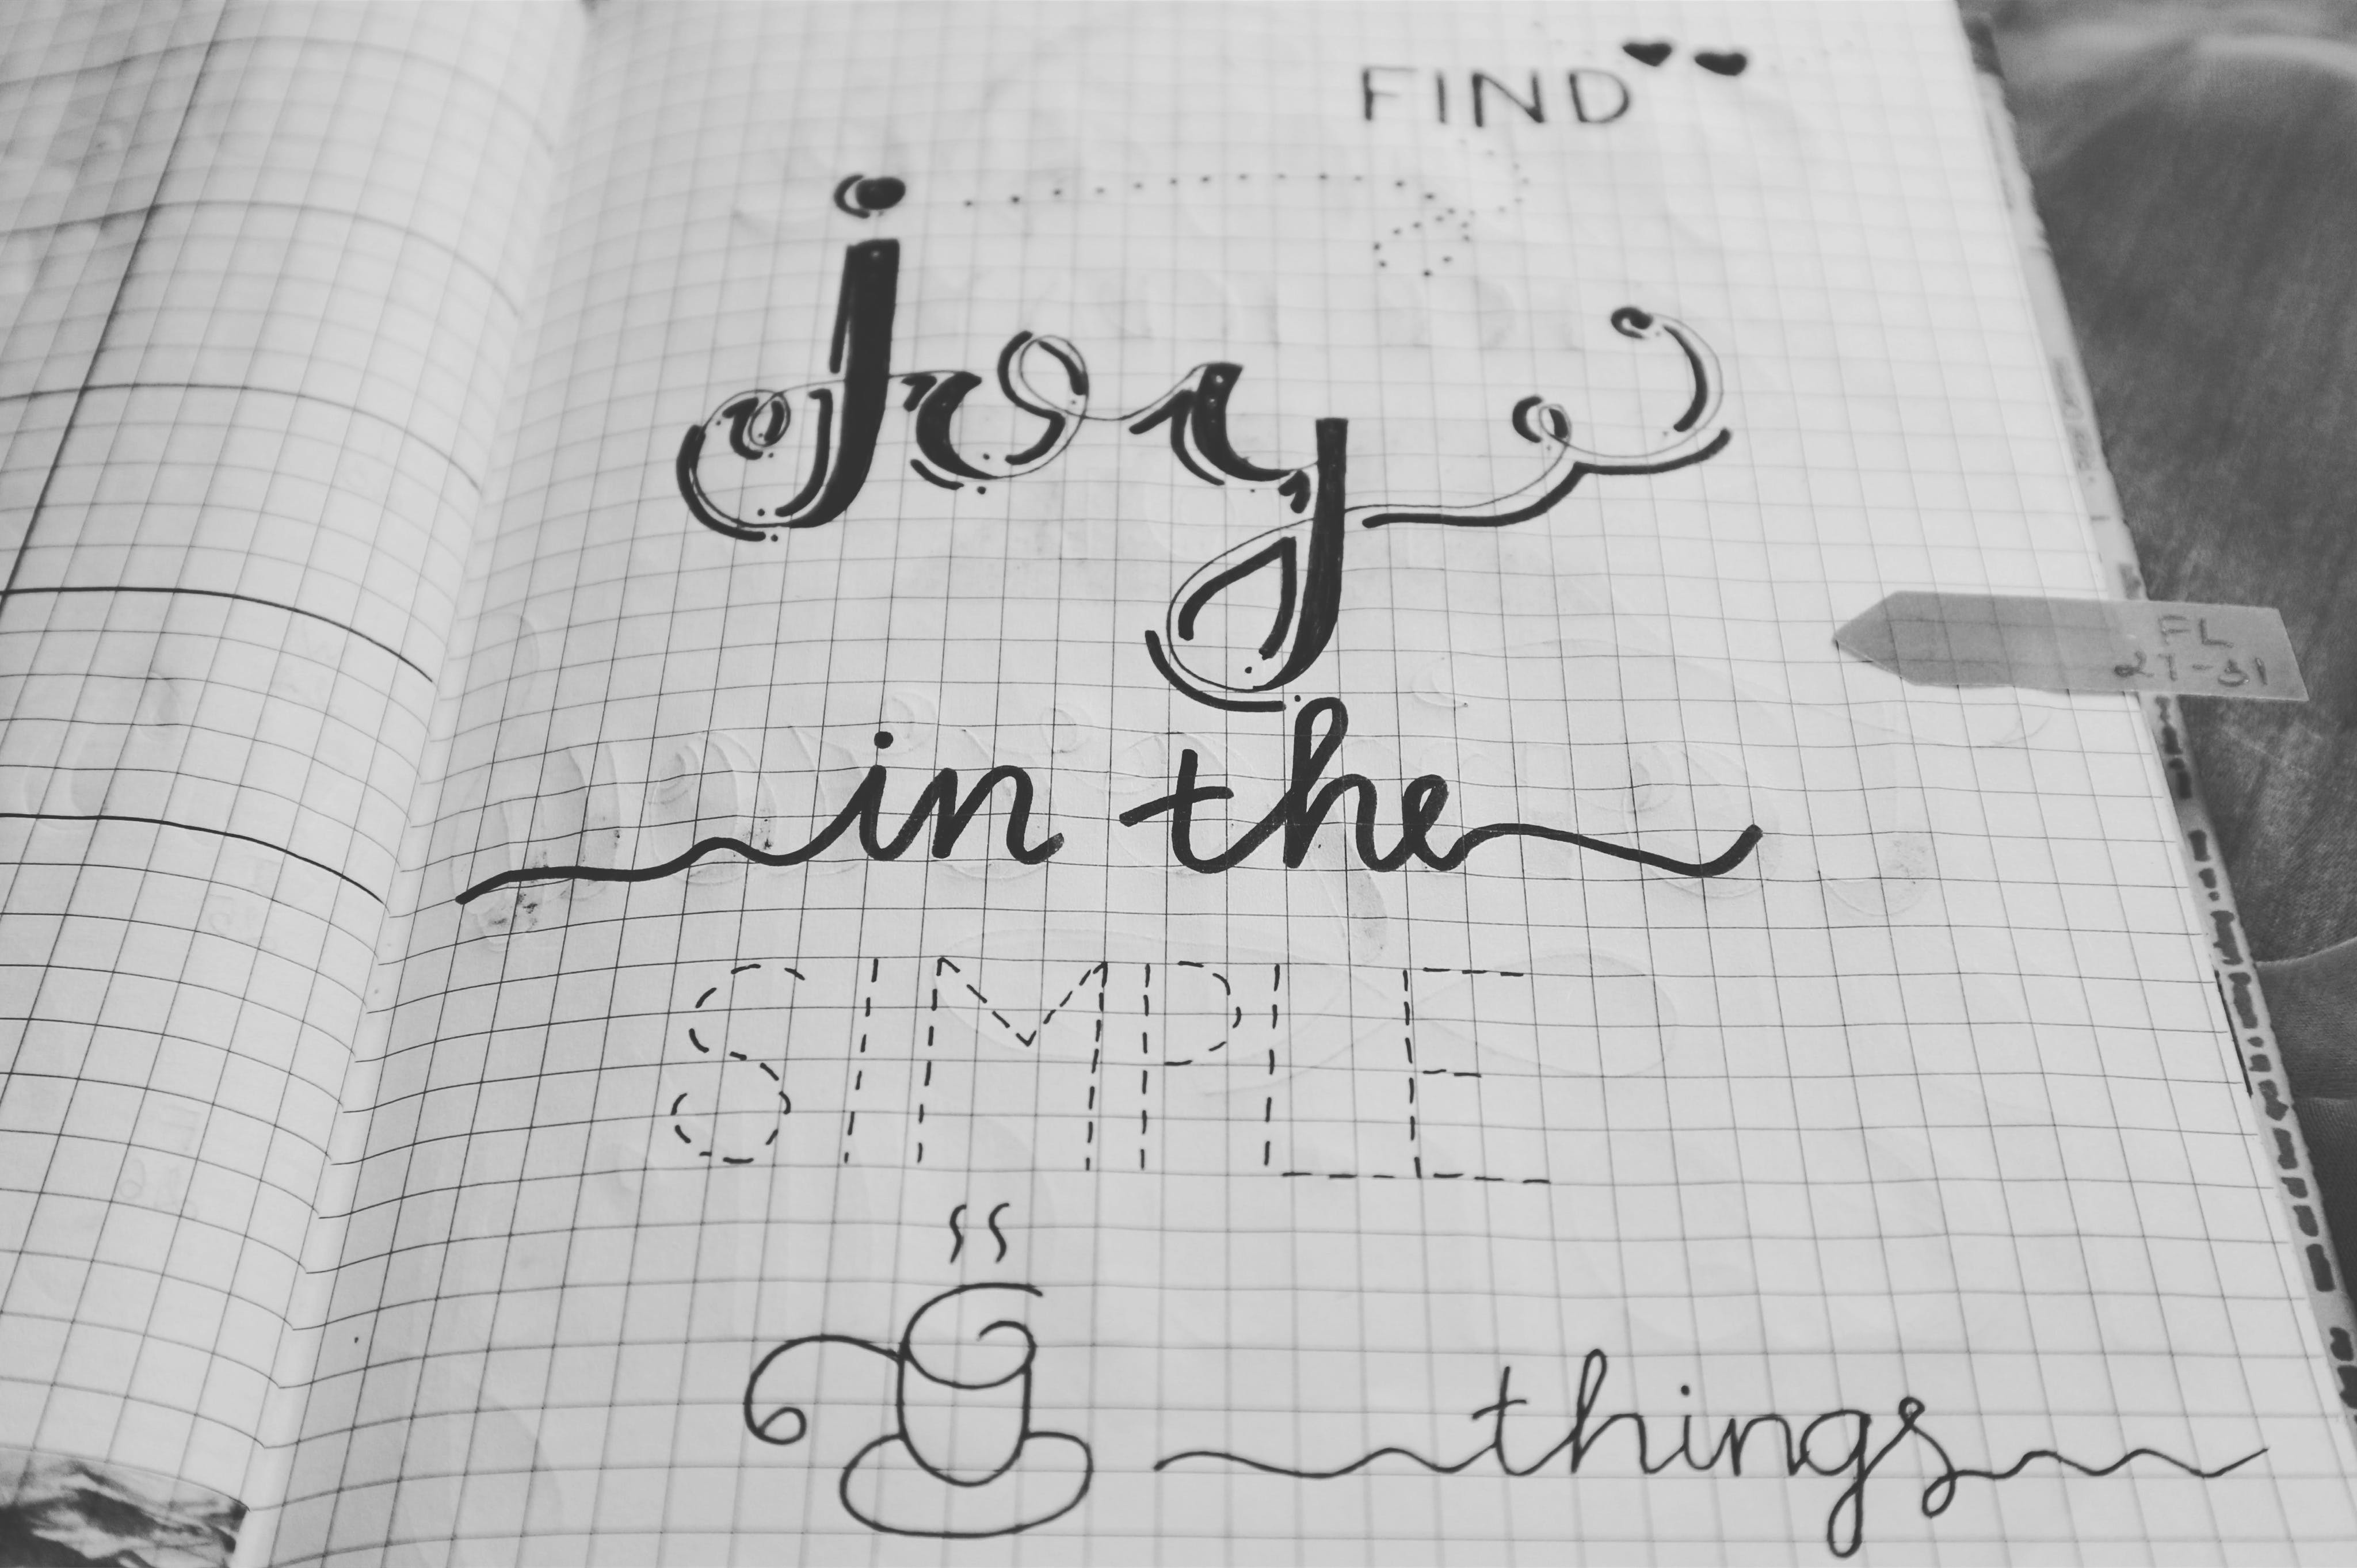 FIND
joy
in the
SIMPLE
things
FL
27-31